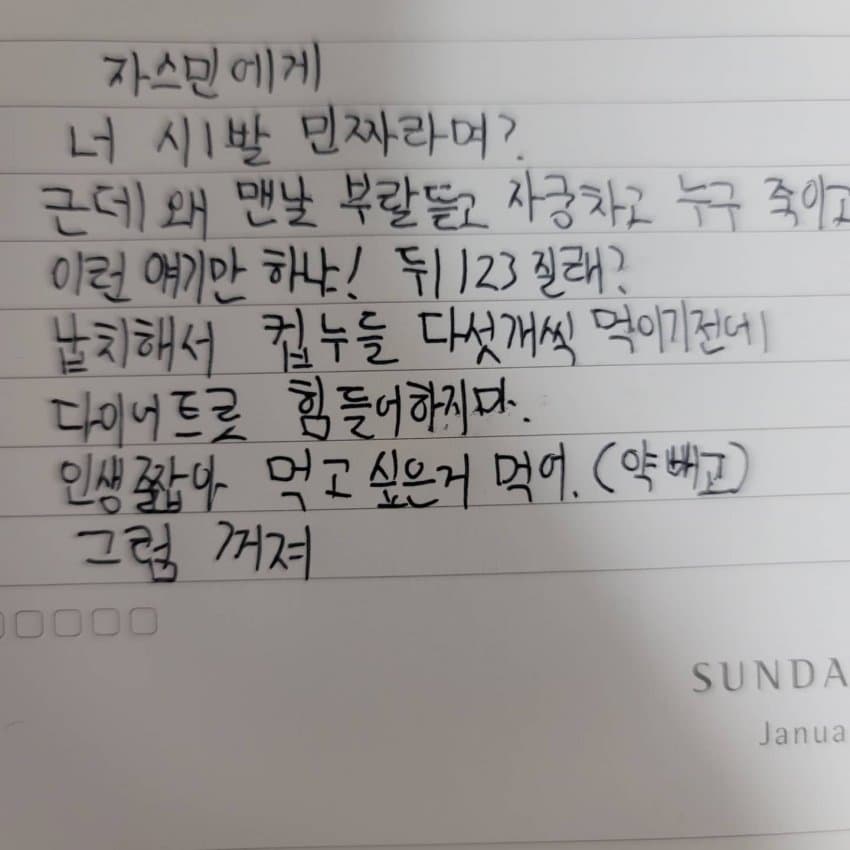 자스민에게
너 시1발 민짜라며?
근데 왜 맨날 부랄뜯고 자궁차고 누구 죽이고
이런 얘기만 하냐! 뒤1123질래?
납치해서 컵누들 다섯개씩 먹이기전에
다이어트로 힘들어하지마.
인생 짧아 먹고 싶은거 먹어. (약빼고)
그럼 꺼져
SUNDA
Janua